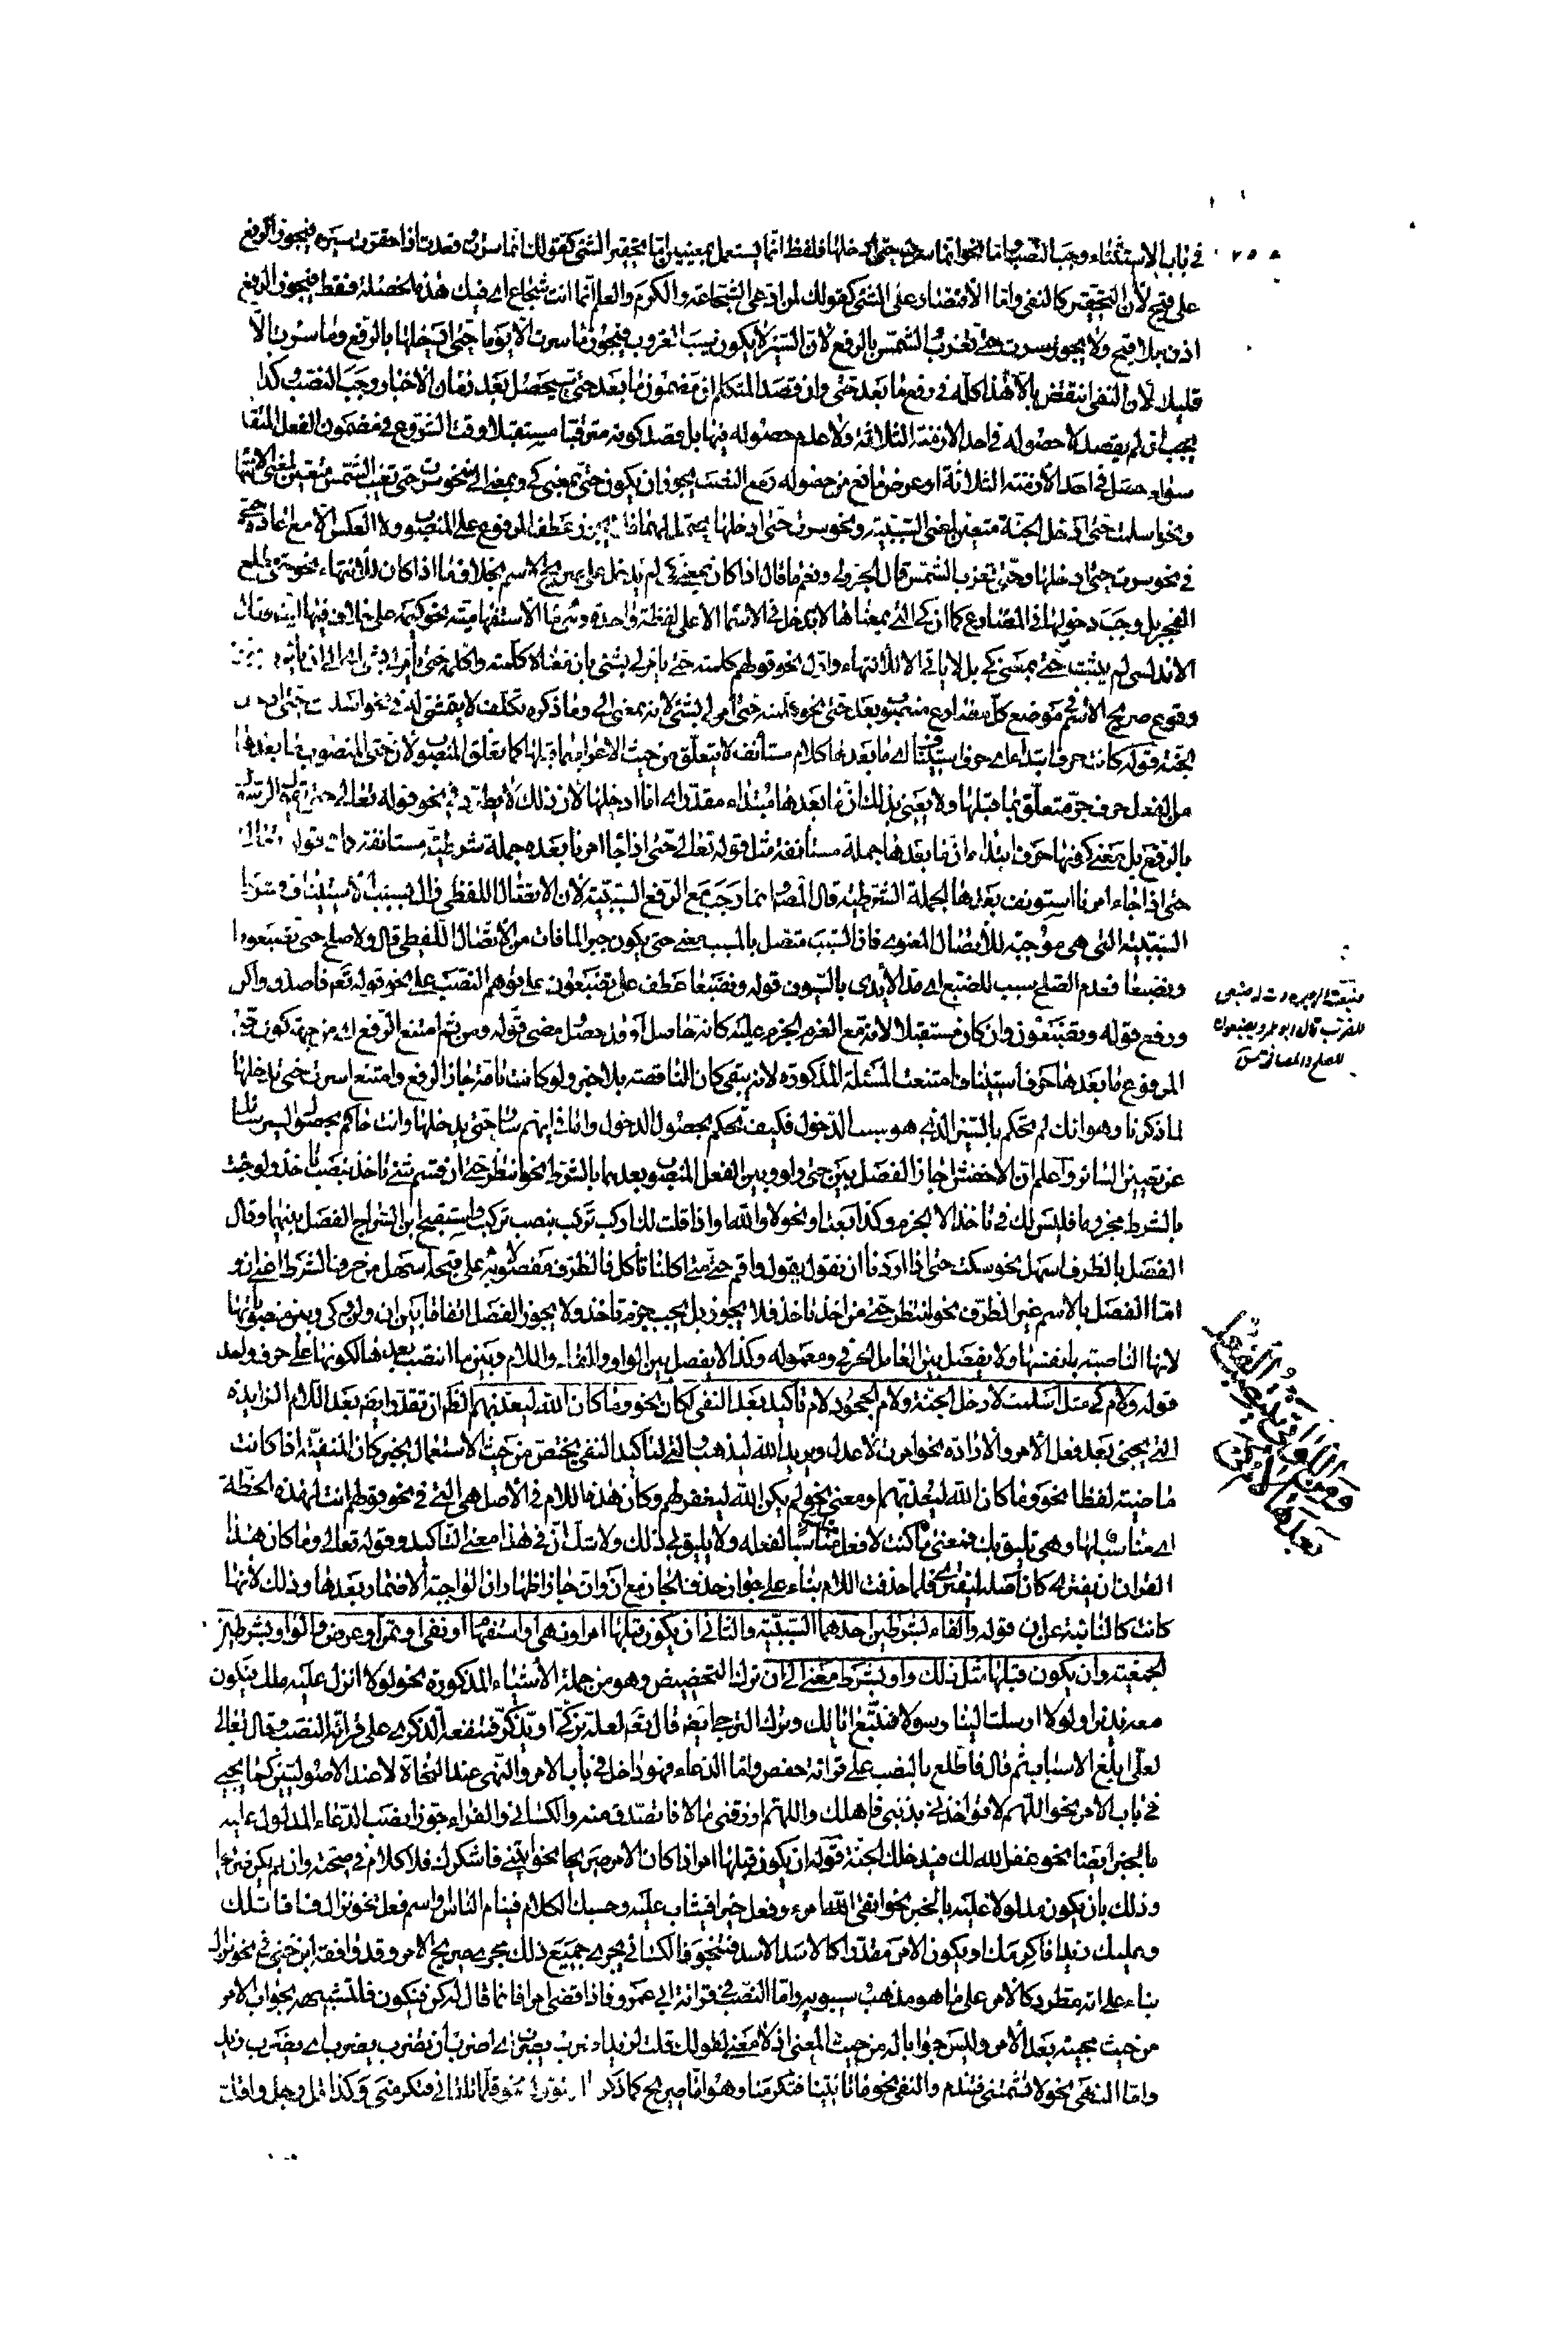 في باب الاستثناء وجب النصب واما نحو انما سرت حتى ادخلها فلفظ انما يستعمل بمعنيين اما تحقير الشئ كقولك انما سرت وقعدت اذا حقرت سيره فيجوز الرفع
على قبح لأن التحقير كالنفي واما الاقتصار على الشئ كقولك لمن ادعى الشجاعة والكرم والعلم انما انت شجاع اى فيك هذه الخصلة فقط فيجوز الرفع
اذن بلا قبح ولا يجوز سرت حتى تغرب الشمس بالرفع لان السير لا يكون سبب الغروب ويجوز ما سرت الا يوما حتى ادخلها بالرفع وما سرت الا
قليلا لأن النفي انتقض بالا هذا كله في رفع ما بعد حتى وان قصد المتكلم ان مضمون ما بعد حتى سيحصل بعد زمان الاخبار وجب النصب وكذا
يجب ان لم يقصد لا حصوله في احد الازمنة الثلاثة ولا عدم حصوله فيها بل قصد كونه مترقبا مستقبلا وقت الشروع في مضمون الفعل المتقدم
سواء حصل في احد الأزمنة الثلاثة او عرض مانع من حصوله ومع النصب يجوز ان يكون حتى بمعنى كي وبمعنى الى فنحو سرت حتى تغيب الشمس متعين لمعنى الانتهاء
ونحو اسلمت حتى ادخل الجنة متعين لمعنى السببية ونحو سرت حتى ادخلها يحتملهما عطف المرفوع على المنصوب ولا العكس الا مع اعادة حتى
في نحو سرت حتى ادخلها وحتى تغرب الشمس قال الجزولي ونعم ما قال اذا كان بمعنى كي لم يدخل على صريح الاسم بخلاف ما اذا كان للانتهاء نحو حتى مطلع
الفجر بل وجب دخولها في المضارع كما ان كي التي بمعناها لا تدخل في الاسماء الا على لفظة واحدة وهي ما الاستفهامية نحو كيمه على خلاف فيها ايضا وقال
الاندلسي لم يثبت حتى بمعنى كي بل لا يأتي الا للانتهاء واول نحو قولهم كلمته حتى يأمر لي بشئ بان معناه كلمته واكلمه حتى يأمر لي بشئ اى الى ان يأمر
وقوع صريح الاسم في موضع كل مضارع منصوب بعد حتى نحو كلمته حتى امر لي بشئ لانه بمعنى الى وما ذكره تكلف لا يتمشى له في نحو اسلمت حتى ادخل
الجنة قوله كانت حرف ابتداء اى حرف استيناف اى ما بعدها كلام مستأنف لا يتعلق من حيث الاعراب بما قبلها كما تعلق المنصوب لان حتى المنصوب ما بعدها
من الفعل حرف جر متعلق بما قبلها ولا يعني بذلك ان ما بعدها مبتداء مقدر اى انا ادخلها لان ذلك لا يطرد في نحو قوله تعالى حتى يقول الرسول
بالرفع بل معنى كونها حرف ابتداء ان ما بعدها جملة مستأنفة مثل قوله تعالى حتى اذا جاء امرنا بعده جملة شرطية مستانفة
حتى اذا جاء امرنا استونف بعدها الجملة الشرطية قال المصنف وانما وجب مع الرفع السببية لأن الاتصال اللفظي زال بسبب الاستيناف فشرط
السببية التي هي موجبة للاتصال المعنوي فان السبب متصل بالمسبب معنى حتى يكون جبرا لما فات من الاتصال اللفظي قال ولا صلح حتى تضبعونا
ونضبعا فعدم الصلح سبب للضبع اى مد الأيدي بالسيوف قوله ونضبعا عطف على تضبعون على توهم النصب على نحو قوله تع فاصدق واكن
ورفع قوله وتضبعون وان كان مستقبلا لانه مع العزم الجزم عليه كانه حاصل او قد حصل مضى قوله ومن ثم امتنع الرفع اى من جهة كون حتى
المرفوع ما بعدها حرف استيناف امتنعت المسئلة المذكورة لانه يبقى كان الناقصة بلا خبر ولو كانت تامة جاز الرفع وامتنع اسرت حتى تدخلها
لما ذكرنا وهو انك لم تحكم بالسير الذي هو سبب الدخول فكيف تحكم بحصول الدخول واما في ايهم سار حتى يدخلها وانت حاكم بحصول السير سائل
عن تعيين السائر واعلم ان الاخفش اجاز الفصل بين حتى واو وبين الفعل المنصوب بعدهما بالشرط نحو انتظر حتى ان قسم شئ تأخذ بنصب تأخذ ولو جئت
بالشرط مجزوما فليس لك في تأخذ الا الجزم وكذا بعد او نحو لا والله او اذا قلت لك اركب تركب بنصب تركب واستقبح ابن السراج الفصل بينهما وقال
الفصل بالظرف اسهل نحو سكت حتى اذا اردنا ان نقول يقول واقم حتى متى اكلنا تأكل فالظرف مفصول به على قبحه اسهل من حرف الشرط اعني ان و
اما الفصل بالاسم غير الظرف نحو انتظر حتى من اخذ تأخذ فلا يجوز بل يجب جزم تأخذ ولا يجوز الفصل اتفاقا بين ان ولن وكي وبين منصوباتها
لانها الناصبة بانفسها ولا يفصل بين العامل الحرفي ومعموله وكذا لا يفصل بين الواو والفاء واللام وبين ما انتصب بعدها لكونها على حرف واحد
قوله ولام كي مثل اسلمت لأدخل الجنة ولام الجحود لام تأكيد بعد النفي لكان نحو وما كان الله ليعذبهم الظ ان تقدر ايضا بعد اللام الزايدة
التي تجئ بعد فعل الأمر والارادة نحو امرت لأعدل ويريد الله ليذهب والتي لتأكيد النفي يختص من حيث الاستعمال بخبر كان المنفية اذا كانت
ماضية لفظا نحو وما كان الله ليعذبهم او معنى نحو لم يكن الله ليغفر لهم وكان هذه اللام في الأصل هي التي في نحو قولهم انت لهذه الخطة
اى مناسب لها وهي تليق بك فمعنى ما كنت لافعل ما كنت مناسبا لفعله ولا يليق بي ذلك ولا شك ان في هذا معنى التأكيد وقوله تعالى وما كان هذا
القران ان يفترى كان اصله ليفترى فلما حذفت اللام بناء على جواز حذف الجار مع ان وان جاز اظهار ان الواجبة الاضمار بعدها وذلك لأنها
كانت كالنائبة عن ان قوله والفاء بشرطين احدهما السببية والثاني ان يكون قبلها امر او نهي او استفهام او نفي او تمن او عرض والواو بشرطين
الجمعية وان يكون قبلها مثل ذلك واو بشرط معنى الى ان ترك التحضيض وهو من جملة الأشياء المذكورة نحو لولا انزل عليه ملك فيكون
معه نذيرا ولولا ارسلت الينا رسولا فنتبع اياتك وترك الترجي ايضا قال تعه لعله يزكى او يذكر فتنفعه الذكرى على قرائة النصب وقال تعالى
لعلي ابلغ الاسباب ثم قال فاطلع بالنصب على قرائة حفص واما الدعاء فهو داخل في باب الامر والنهي عند النحاة لا عند الاصوليين كما يجيئ
في باب الامر نحو اللهم لا تؤاخذني بذنبي فاهلك واللهم ارزقني مالا فاتصدق منه والكسائي والفراء جوزا نصب الدعاء المدلول عليه
بالخبر ايضا نحو غفر الله لك فيدخلك الجنة قوله ان يكون قبلها امر اذا كان الامر صريحا نحو ايتني فاشكرك فلا كلام في صحته وان لم يكن صريحا
وذلك بان يكون مدلولا عليه بالخبر نحو اتقى الله امرء وفعل خيرا فيثاب عليه وحسبك الكلام فينام الناس واسم فعل نحو نزال فاقاتلك
وعليك زيدا فاكرمك او يكون الامر مقدرا كالاسد الاسد فتنجو فالكسائي يجري جميع ذلك مجرى صريح الامر وقد وافقه ابن جني في نحو نزال
بناء على انه مطرد كالأمر على ما هو مذهب سيبويه واما النصب في قرائة ابي عمرو فاذا قضى امرا فانما قال له كن فيكون فلتشبيهه بجواب الامر
من حيث مجيئه بعد الأمر وليس جوابا له من حيث المعنى اذ لا معنى لقولك قلت لزيد اضرب يضرب اى اضرب ان تضرب يضرب اى يضرب زيد
واما النهي نحو لا تشتمني فتندم والنفي نحو ما تأتينا فتكرمنا وهو اما صريح كما ذكر نحو قلما تلقاني فتكرمني وكذا قل رجل واقلت
للضرب قال ابو عمرو يضبعون
للصلح والمصافحة
ومعنى الا وتى فينصب الفعل
بعدها لا يكن